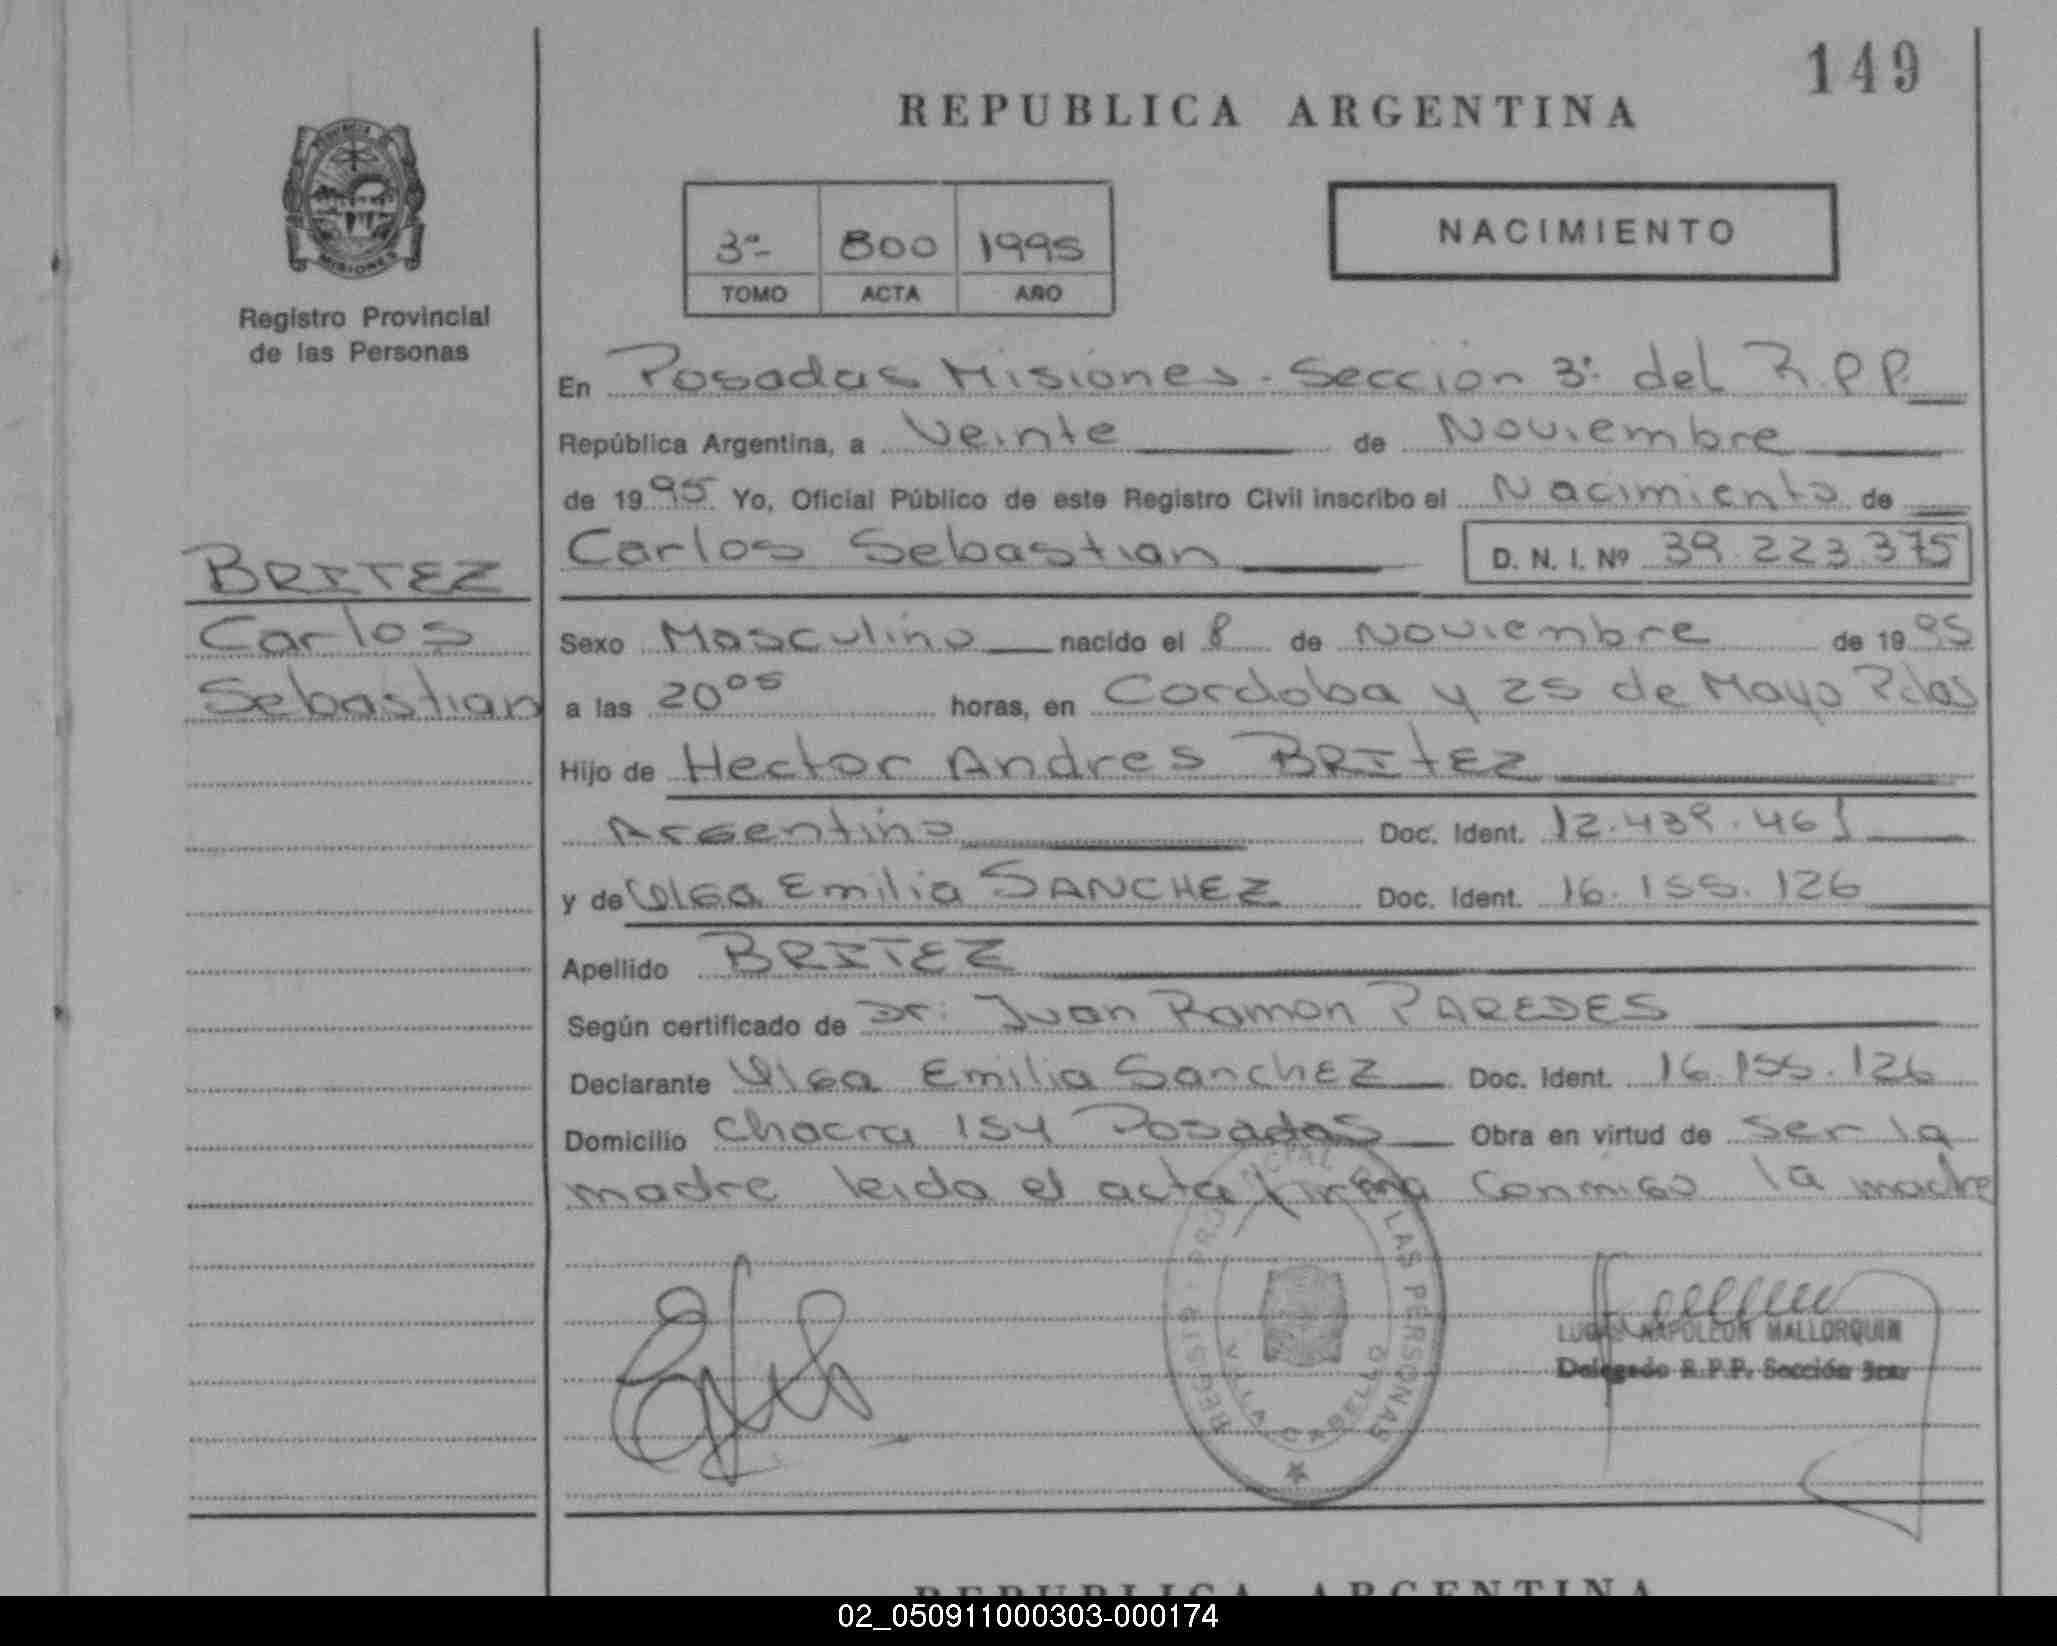 149
REPUBLICA ARGENTINA
PROVINCIA
MISIONES
Registro Provincial
de las Personas
3ª- 800 1995
TOMO ACTA AÑO
NACIMIENTO
En Posadas Misiones - Sección 3ª del R.P.P.
República Argentina, a Veinte de Noviembre
de 1995 Yo, Oficial Público de este Registro Civil inscribo el Nacimiento de
Carlos Sebastian D. N. I. Nº 39.223.375
BRITEZ
Carlos
Sebastian
Sexo Masculino nacido el 8 de Noviembre de 1995
a las 20⁰⁵ horas, en Cordoba y 25 de Mayo Pdas
Hijo de Hector Andres BRITEZ
Argentino Doc. Ident. 12.439.461
y de Olga Emilia SANCHEZ Doc. Ident. 16.155.126
Apellido BRITEZ
Según certificado de Dr. Juan Ramon PAREDES
Declarante Olga Emilia SanchEZ Doc. Ident. 16.155.126
Domicilio chacra 154 Posadas Obra en virtud de Ser la
madre leido el acta firma conmigo la madre
REGISTRO PROVINCIAL DE LAS PERSONAS
VILLA CABELLO
LUCAS NAPOLEON MALLORQUIN
Delegado R.P.P. Sección 3ra.
REPUBLICA ARGENTINA
02_050911000303-000174